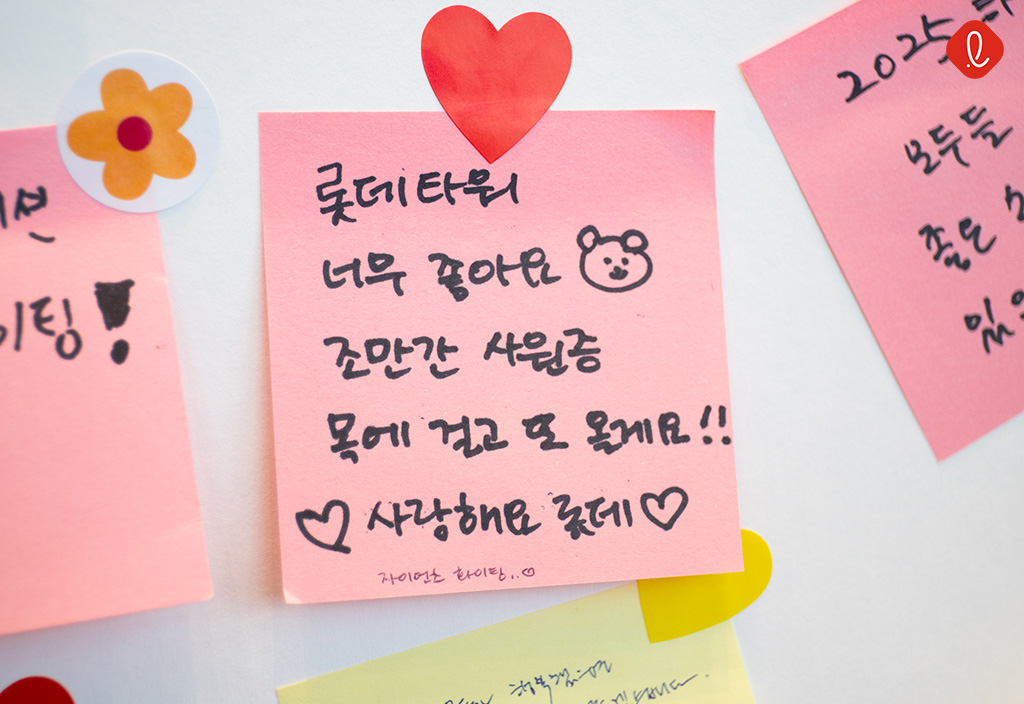 롯데타워
너무 좋아요
조만간 사원증
목에 걸고 또 올게요!!
♡사랑해요 롯데♡
자이언츠 화이팅..♡
이팅!
2025
모두들